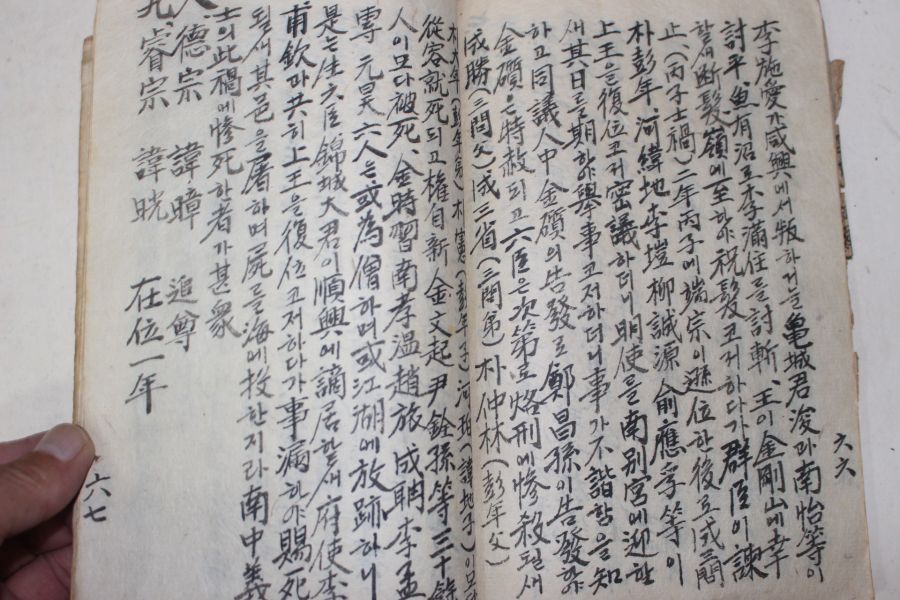 李施愛가 咸興에서 叛하거늘 亀城君浚과 南怡等이
討平、魚有沼로 李滿住를 討斬、王이 金剛山에 幸
할새 断髮嶺에 至하야 祝髮코저하다가 群臣이 諫
止(丙子士禍)二年丙子에 端宗이 遜位한後로 成三問
朴彭年、河緯地 李塏 柳誠源 俞應孚等이
上王을 復位코저 密議하더니 明使를 南別宮에 迎할
새 其日로 期하야 擧事코저하더니 事가 不諧함을 知
하고 同議人中 金礩의 告發로 鄭昌孫이 告發하야
金礩은 特赦되고 六臣은 次第로 烙刑에 惨殺될새
成勝(三問父)成三省(三問弟)朴仲林(彭年父)
六六
朴大年(彭年弟)朴憲(彭年子)河珀(緯地子)이모다
從容就死되고 權自新 金文起 尹鈴孫等 三十餘
人이모다 被死、金時習 南孝溫 趙旅 成聃 李孟
專 元昊 六人는 或為僧하며 或江湖에 放跡하니
是는 生六臣 錦城大君이 順興에 謫居할새 府使李
甫欽과 共히 上王을 復位코저하다가 事漏하야 賜死
될새 其邑을 屠하며 屍를 海에 投한지라 南中義
士의 此禍에 惨死한者가 甚衆
德宗 諱暲 追尊
睿宗 諱晄 在位一年
六七